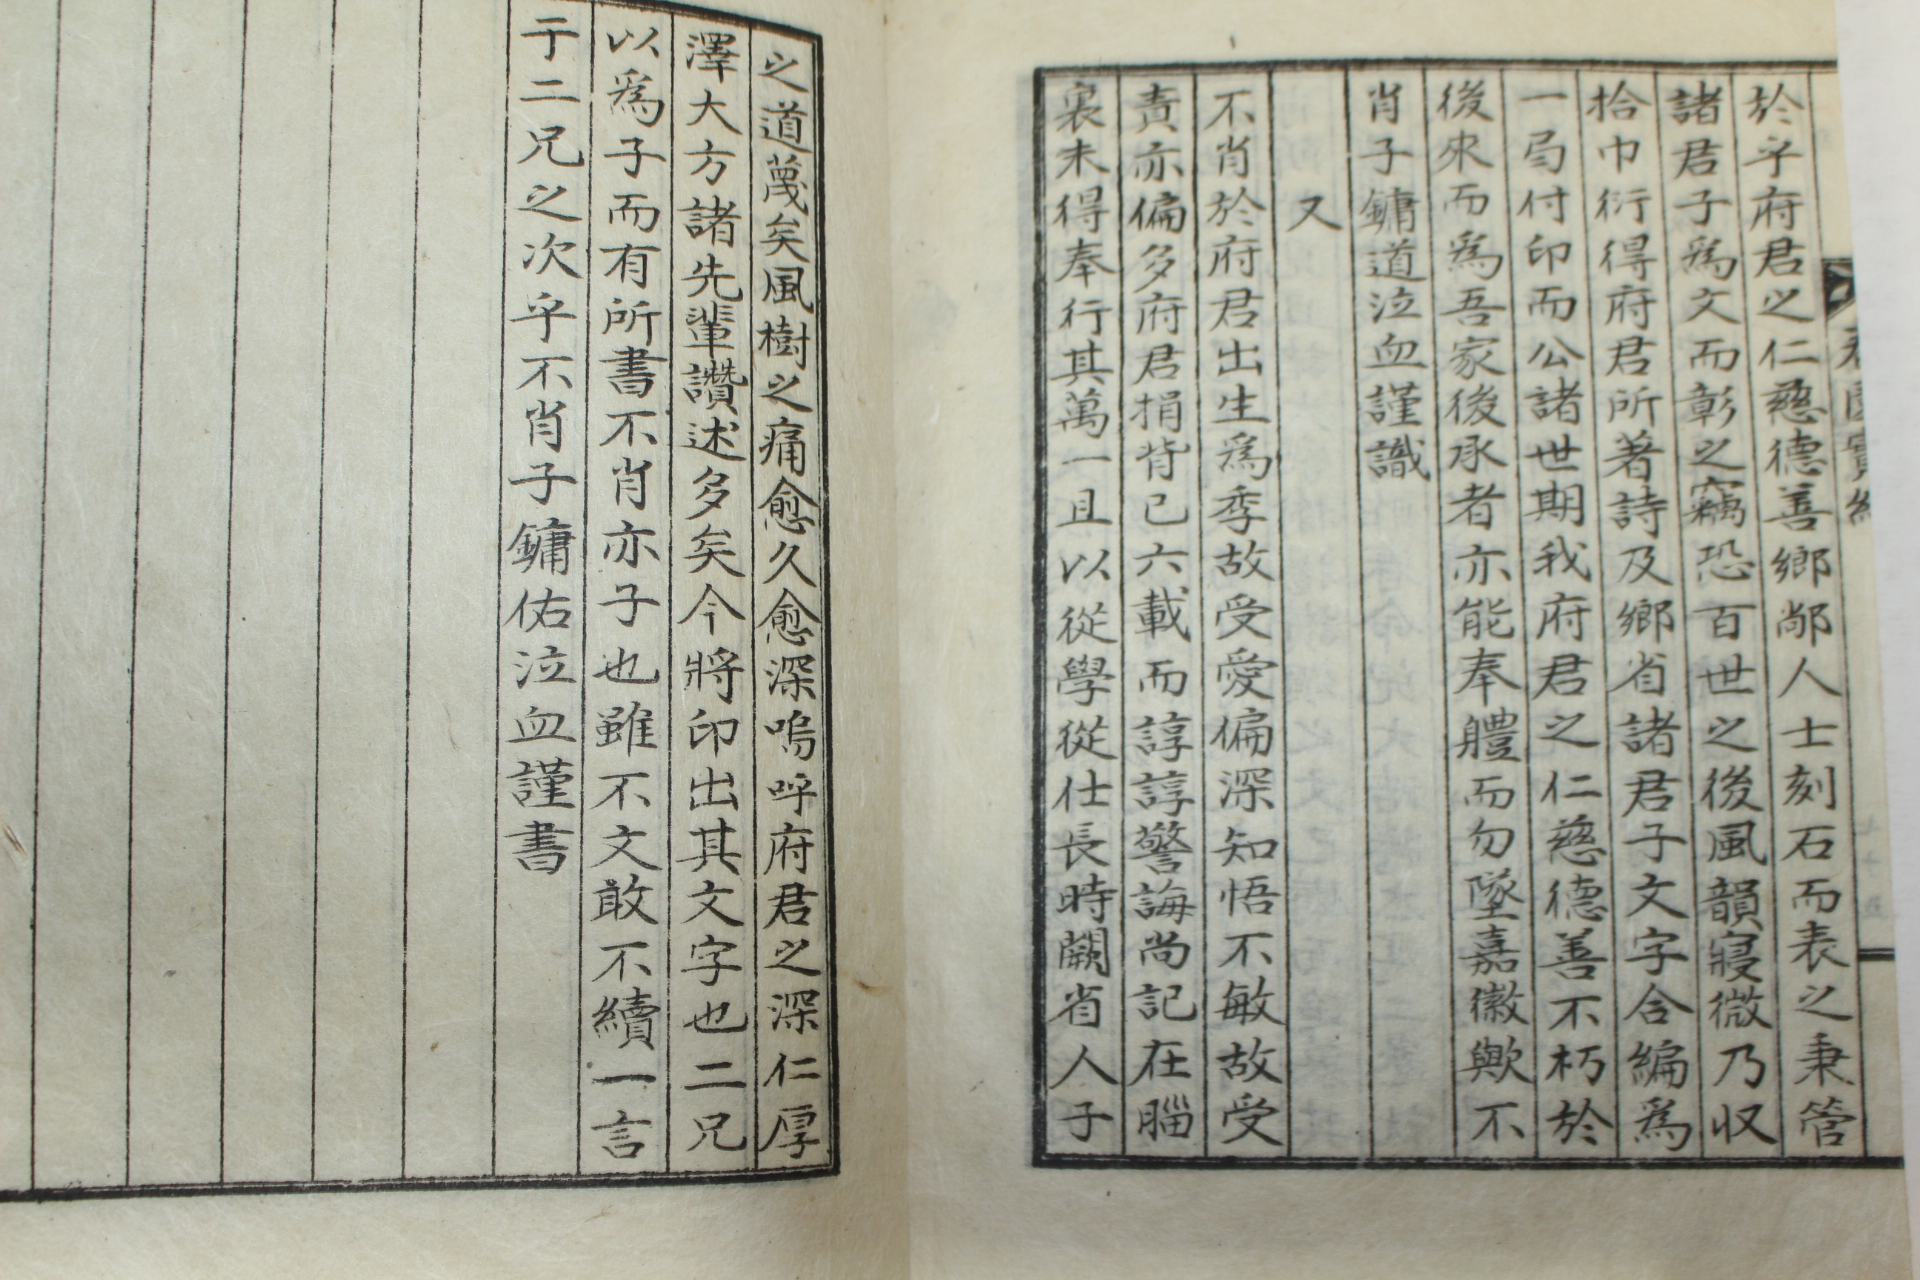 於乎府君之仁慈德善鄉鄰人士刻石而表之秉管
諸君子爲文而彰之竊恐百世之後風韻寢微乃收
拾巾衍得府君所著詩及鄉省諸君子文字合編爲
一局付印而公諸世期我府君之仁慈德善不朽於
後來而爲吾家後承者亦能奉軆而勿墜嘉徽歟不
肖子鏞道泣血謹識
又
不肖於府君出生爲季故受愛偏深知悟不敏故受
責亦偏多府君捐背已六載而諄諄警誨尚記在腦
裏未得奉行其萬一且以從學從仕長時闕省人子
之道蔑矣風樹之痛愈久愈深嗚呼府君之深仁厚
澤大方諸先輩讚述多矣今將印出其文字也二兄
以爲子而有所書不肖亦子也雖不文敢不續一言
于二兄之次乎不肖子鏞佑泣血謹書